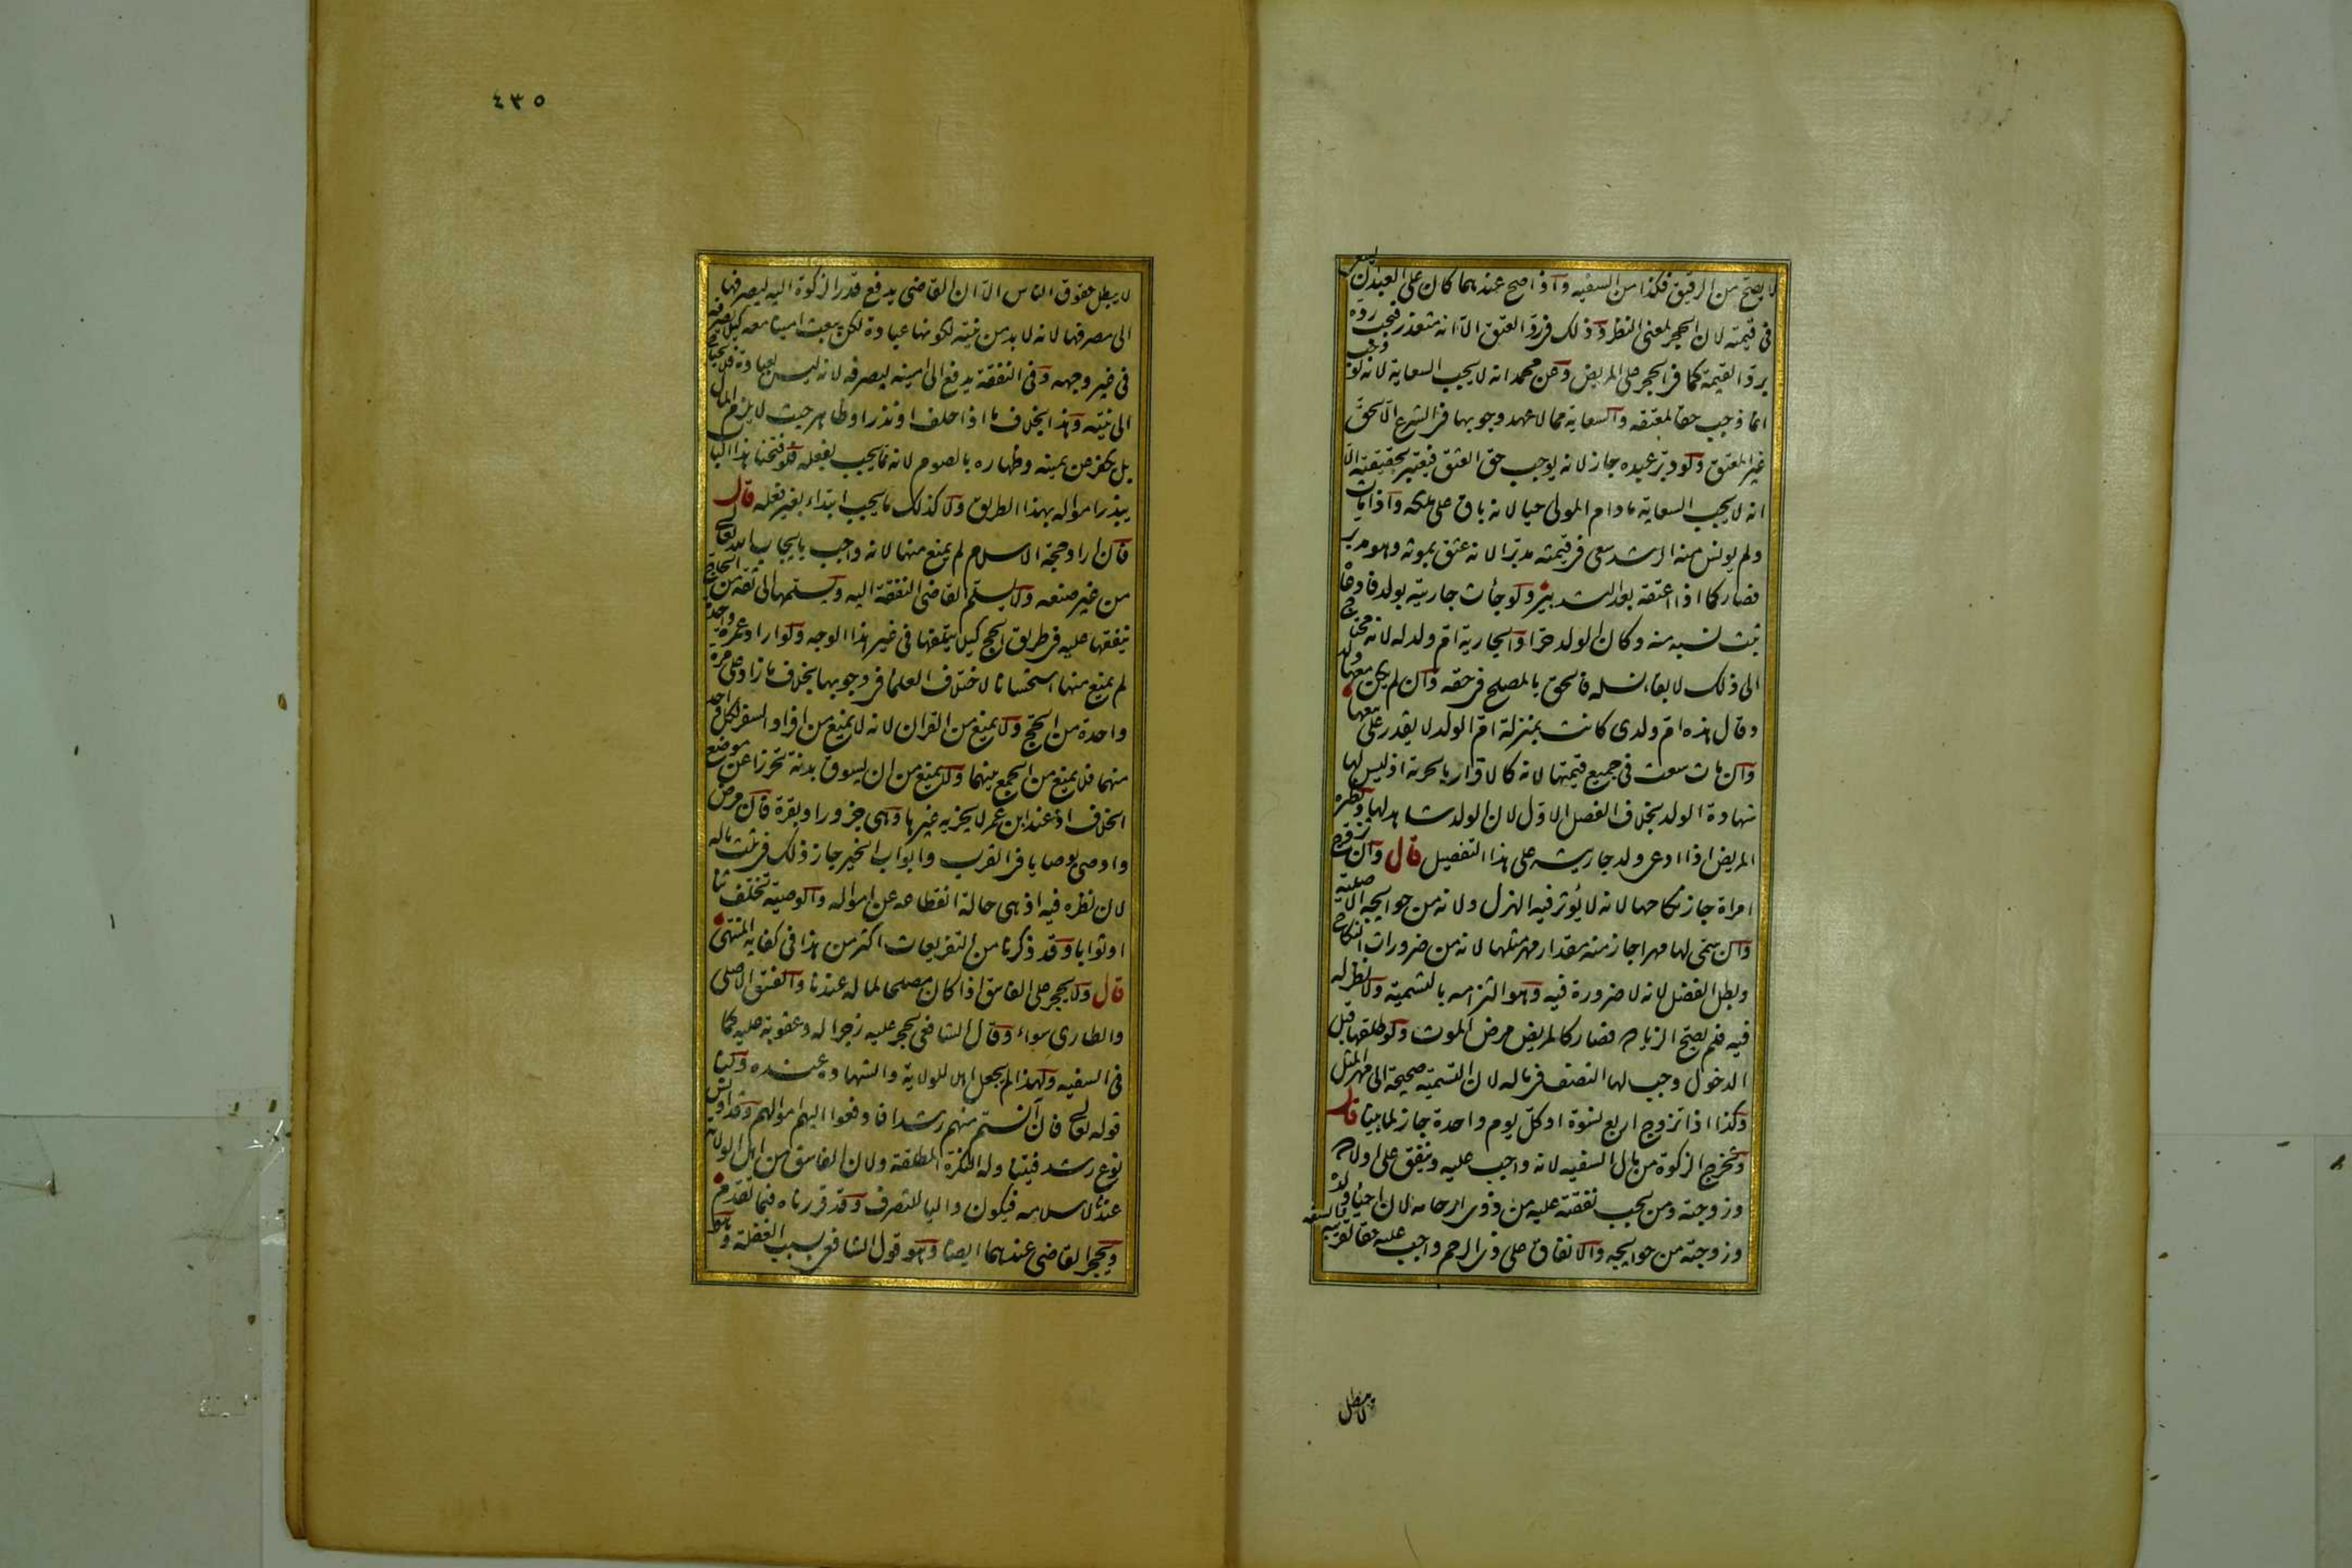 لا يصح من الرقيق فكذا من السفيه واذا صح عندهما كان على العبد ان يسعى
فى قيمته لان الحجر لمعنى النظر وذلك فى رد العتق الا انه متعذر فيجب رده
برد القيمة كما فى الحجر على المريض وعن محمد انه لا يجب السعاية لانه لو وجب
انما وجب حقا لمعتقه والسعاية مما لا عهد وجوبها فى الشرع الا لحق
غير المعتق ولو دبر عبده جاز لانه يوجب حق العتق فيعتبر بحقيقته الا
انه لا يجب السعاية ما دام المولى حيا لانه باق على ملكه واذا مات
ولم يونس منه الرشد سعى فى قيمته مدبرا لانه عتق بموته وهو مدبر
فصار كما اذا اعتقه بعد التدبير ولو جأت جاريته بولد فادعاه
ثبت نسبه منه وكان الولد حرا والجارية ام ولد له لانه محتاج
الى ذلك لابقاء نسله فالحق بالمصلح فى حقه وان لم يكن معها ولد
وقال هذه ام ولدى كانت بمنزلة ام الولد لا يقدر على بيعها
وان مات سعت فى جميع قيمتها لانه كالاقرار بالحرية اذ ليس لها
شهادة الولد بخلاف الفصل الاول لان الولد شاهد لها ونظيره
المريض اذا ادعى ولد جاريته على هذا التفصيل قال وان تزوج
امراة جاز نكاحها لانه لا يؤثر فيه الهزل ولانه من حوايجه الاصلية
وان سمى لها مهرا جاز منه مقدار مهر مثلها لانه من ضرورات النكاح
وبطل الفضل لانه لا ضرورة فيه وهو التزامه بالتسمية ولا نظر له
فيه فلم يصح الزيادة فصار كالمريض مرض الموت ولو طلقها قبل
الدخول وجب لها النصف فى ماله لان التسمية صحيحة الى مهر المثل
وكذا اذا تزوج اربع نسوة او كل يوم واحدة جاز لما بينا قال
وتخرج الزكوة من مال السفيه لانه واجب عليه وينفق على اولاده
وزوجته ومن يجب نفقته عليه من ذوى ارحامه لان احياء ولده
وزوجته من حوايجه والانفاق على ذى الرحم واجب عليه حقا لقريبه والسفه
لا يبطل
٤٣٥
لا يبطل حقوق الناس الا ان القاضى يدفع قدر الزكوة اليه ليصرفها
الى مصرفها لانه لا بد من نيته لكونها عبادة لكن يبعث امينا معه كيلا يصرفه
فى غير وجهه وفى النفقة يدفع الى امينه ليصرفه لانه ليس بعبادة فلا يحتاج
الى نيته وهذا بخلاف ما اذا حلف او نذر او ظاهر حيث لا يلزمه المال
بل يكفر عن يمينه وظهاره بالصوم لانه مما يجب بفعله فلو فتحنا هذا الباب
يبذر امواله بهذا الطريق ولا كذلك ما يجب ابتداء بغير فعله قال
فان اراد حجة الاسلام لم يمنع منها لانه واجب بايجاب الله تعالى
من غير صنعه ولا يسلم القاضى النفقة اليه ويسلمها الى ثقة من الحاج
ينفقها عليه فى طريق الحج كيلا يتلفها فى غير هذا الوجه ولو اراد عمرة واحدة
لم يمنع منها استحسانا لاختلاف العلماء فى وجوبها بخلاف ما زاد على مرة
واحدة من الحج ولا يمنع من القران لانه لا يمنع من افراد السفر لكل واحد
منهما فلا يمنع من الجمع بينهما ولا يمنع من ان يسوق بدنة تحرزا عن موضع
الخلاف اذ عند ابن عمر لا يجزيه غيرها وهى جزور او بقرة فان مرض
واوصى بوصايا فى القرب وابواب الخير جاز ذلك فى ثلث ماله
لان نظره فيه اذ هى حالة انقطاعه عن امواله والوصية تخلف ثناء
او ثوابا وقد ذكرنا من التفريعات اكثر من هذا فى كفاية المنتهى
قال ولا يحجر على الفاسق اذا كان مصلحا لماله عندنا والفسق الاصلى
والطارى سواء وقال الشافعى يحجر عليه زجرا له وعقوبة عليه كما
فى السفيه ولهذا لم يجعل اهلا للولاية والشهادة عنده ولنا
قوله تعالى فان آنستم منهم رشدا فادفعوا اليهم اموالهم وقد اونس
نوع رشد فيتناوله النكرة المطلقة ولان الفاسق من اهل الولاية
عندنا لاسلامه فيكون واليا للتصرف وقد قررناه فيما تقدم
ويحجر القاضى عندهما ايضا وهو قول الشافعى بسبب الغفلة وهو